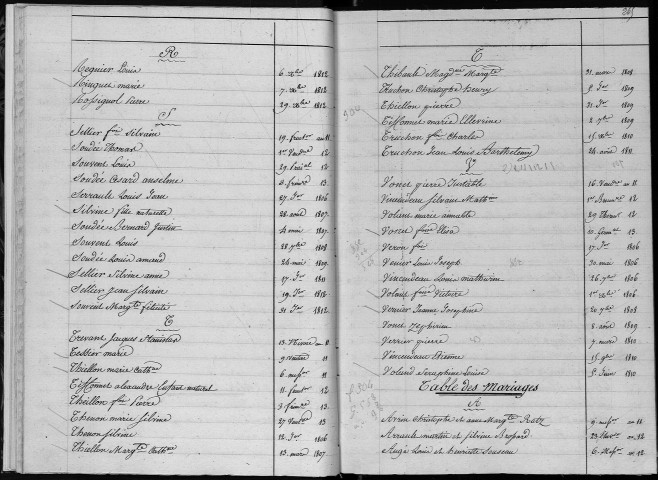 R
Regnier Louis 6 xbre 1812
Ringuet marie 7 xbre 1812
Rossignol Pierre 29 xbre 1812
S
Sellier fois Silvain 19 fruct an 11
Soudée Thomas 1er Vend 12
Souvent Louis 29 12
Soudée Cesard anselme 13
Serrault Louis Jean 27 Jer 1806
Silvine fille naturelle 28 aout 1807
Soudée Bernard Justin 4 mai 1807
Souvent Louis 28 7bre 1808
Soudée Louis amand 24 mai 1809
Sellier Silvine anne 27 Jer 1811
Sellier Jean Silvain 19 Jer 1812
Souvent Margte félicité 31 Jer 1812
T
Trevant Jacques 13 Nivose an 11
Tessier marie 9 11
Thiellon marie Cathne 6 messor 11
Tiffonnet alexandre Enfant naturel 11 fruct 12
Theillon fois Pierre 3 frim 13
Thenon marie Silvine 27 Vent 13
Thenon Silvine 12 Jer 1806
Thiellon Margte Cathne 13 mars 1807
T
Thibault Magdne Margte 21 avril 1808
Truchon Christophe henry 9 Jer 1809
Thiellon pierre 31 Jer 1809
Tiffonnet marie 2 7bre 1809
Truchon fois Charles 15 xbre 1810
Truchon Jean Louis Barthelemy 24 avril 1811
V
Vonet pierre 16 Vend an 11
Vincendeau Silvane Mathne 1er Brum 12
Volant marie aimable 29 Therm 12
Vonet foise Elisa 10 Germ 13
Veron fois 17 Jer 1806
Venier Louis Joseph 30 mai 1806
Vincendeau Louis mathurin 26 7bre 1806
Volant foise Victoire 1er xbre 1806
Verrier Jeanne Josephine 20 7bre 1808
Vonet Zephirin 8 aout 1809
Verrier pierre 7 avril 1810
Vincendeau Etienne 15 9bre 1810
Voland Seraphine Louise 5 Juin 1810
Table des Mariages
A
Avrin Christophe et anne Margte Ratz 6 messr an 11
Arrault martin et Silvine Brossard 23 Therm an 12
Augé Louis et henriette Rousseau 6 Messr an 12